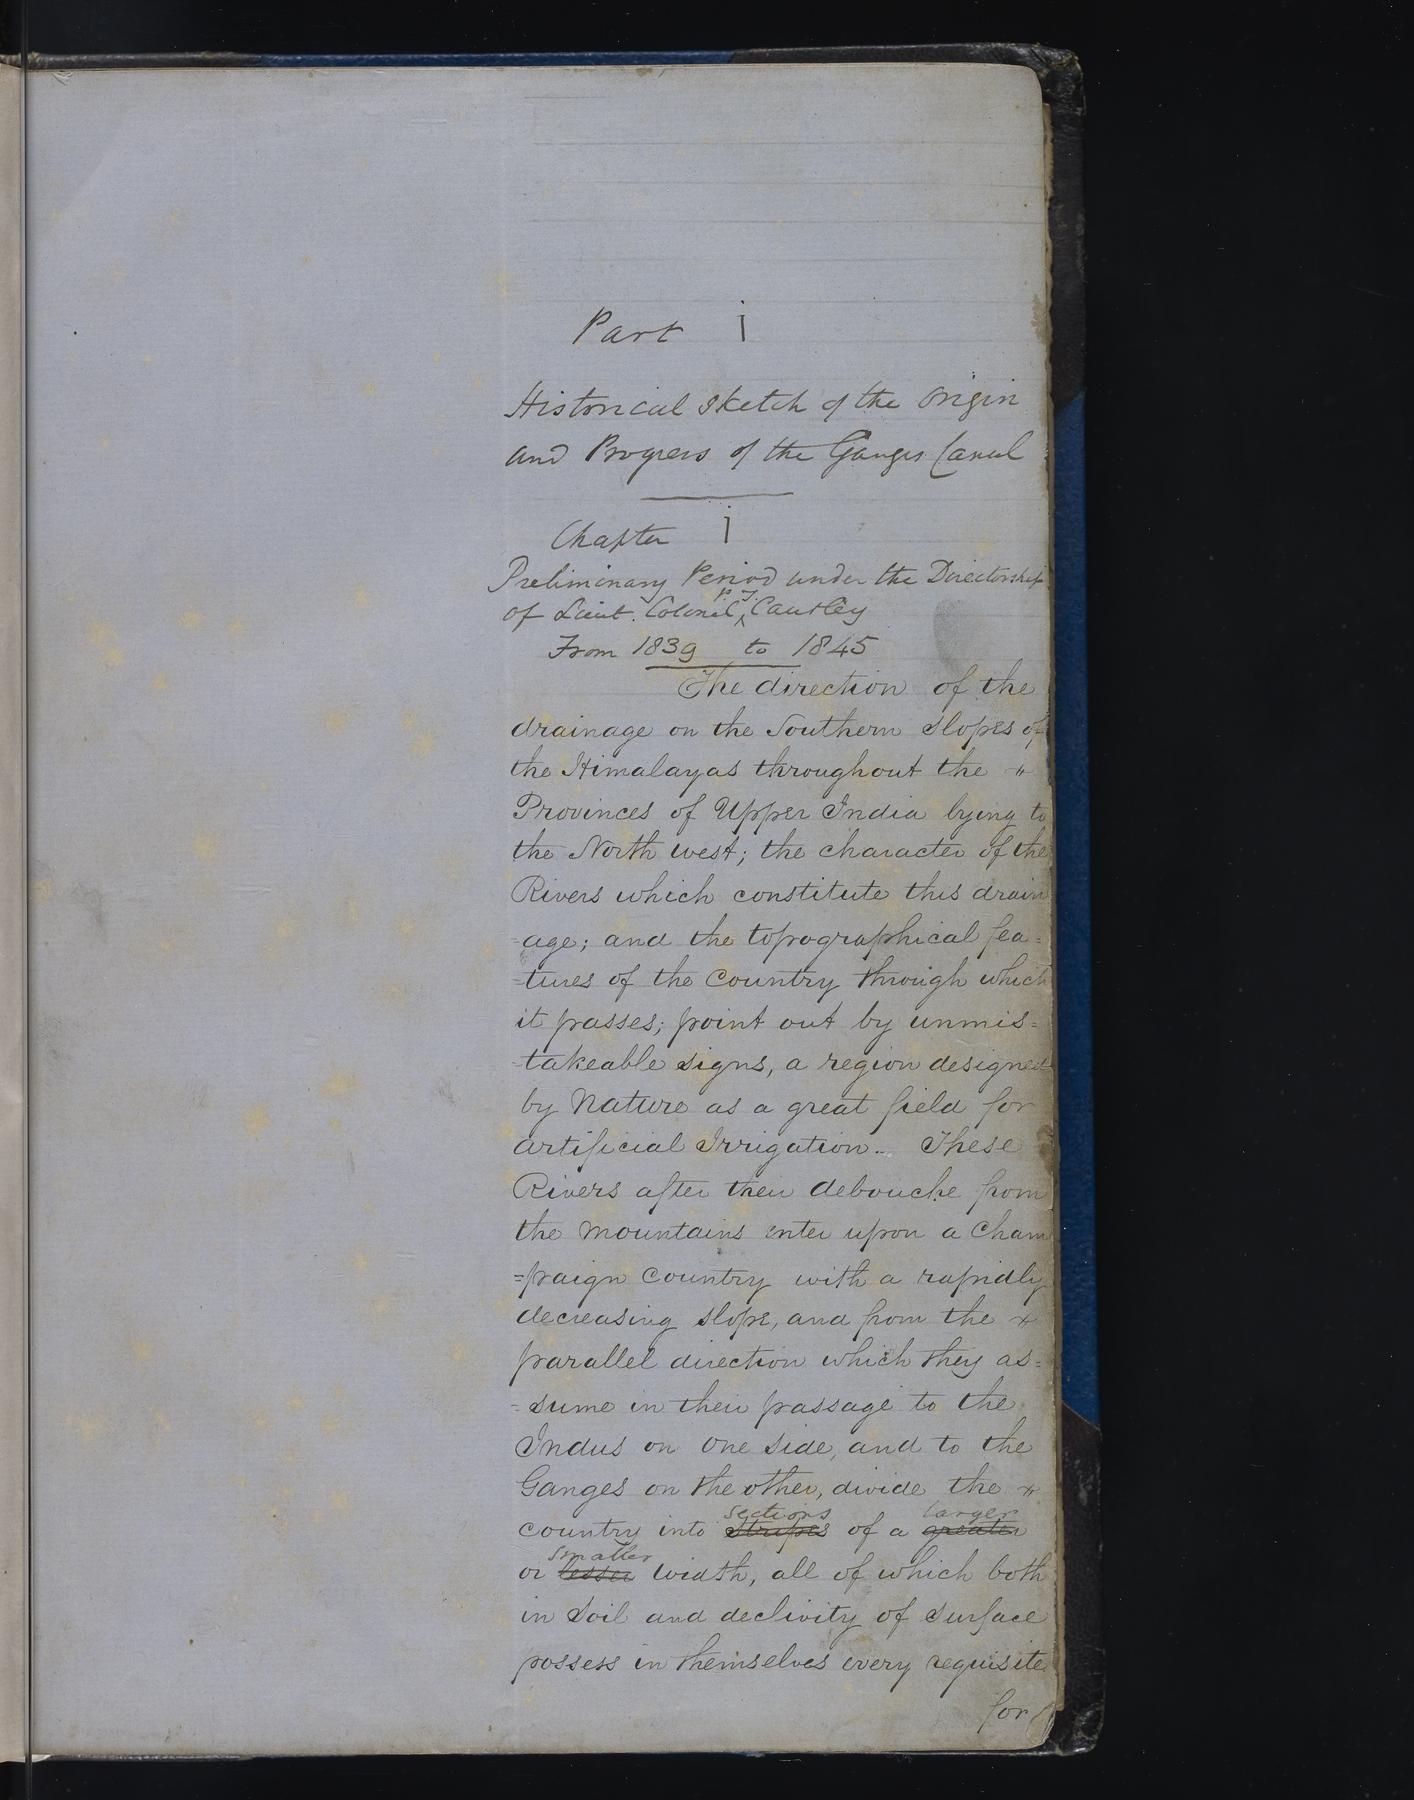 Part I
Historical Sketch of the Origin
and Progress of the Ganges Canal
Chapter I
Preliminary Period under the Directorship
of Lieut. Colonel P. T. Cautley
From 1839 to 1845
The direction of the
drainage on the Southern Slopes of
the Himalayas throughout the "
Provinces of Upper India lying to
the North west; the character of the
Rivers which constitute this drain
-age; and the topographical fea=
=tures of the Country through which
it passes; point out by unmis=
-takeable signs, a region designed
by Nature as a great field for
artificial Irrigation.. These
Rivers after their debouche from
the mountains enter upon a Cham
=paign Country with a rapidly
decreasing slope, and from the "
parallel direction which they as=
=sume in their passage to the
Indus on One Side, and to the
Ganges on the other, divide the "
sections larger
country into stripes of a greater
smaller
or lesser width, all of which both
in Soil and declivity of Surface
possess in themselves every requisite
for